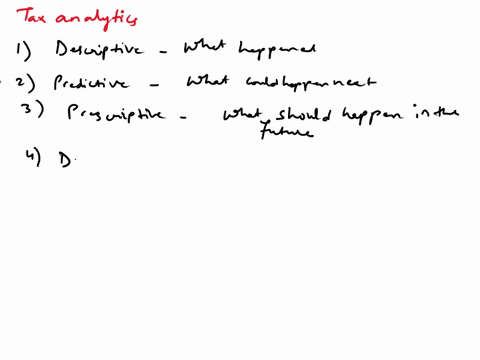 Tax analytics
1) Descriptive - What happened
2) Predictive - What could happen next
3) Prescriptive - What should happen in the
future
4) D